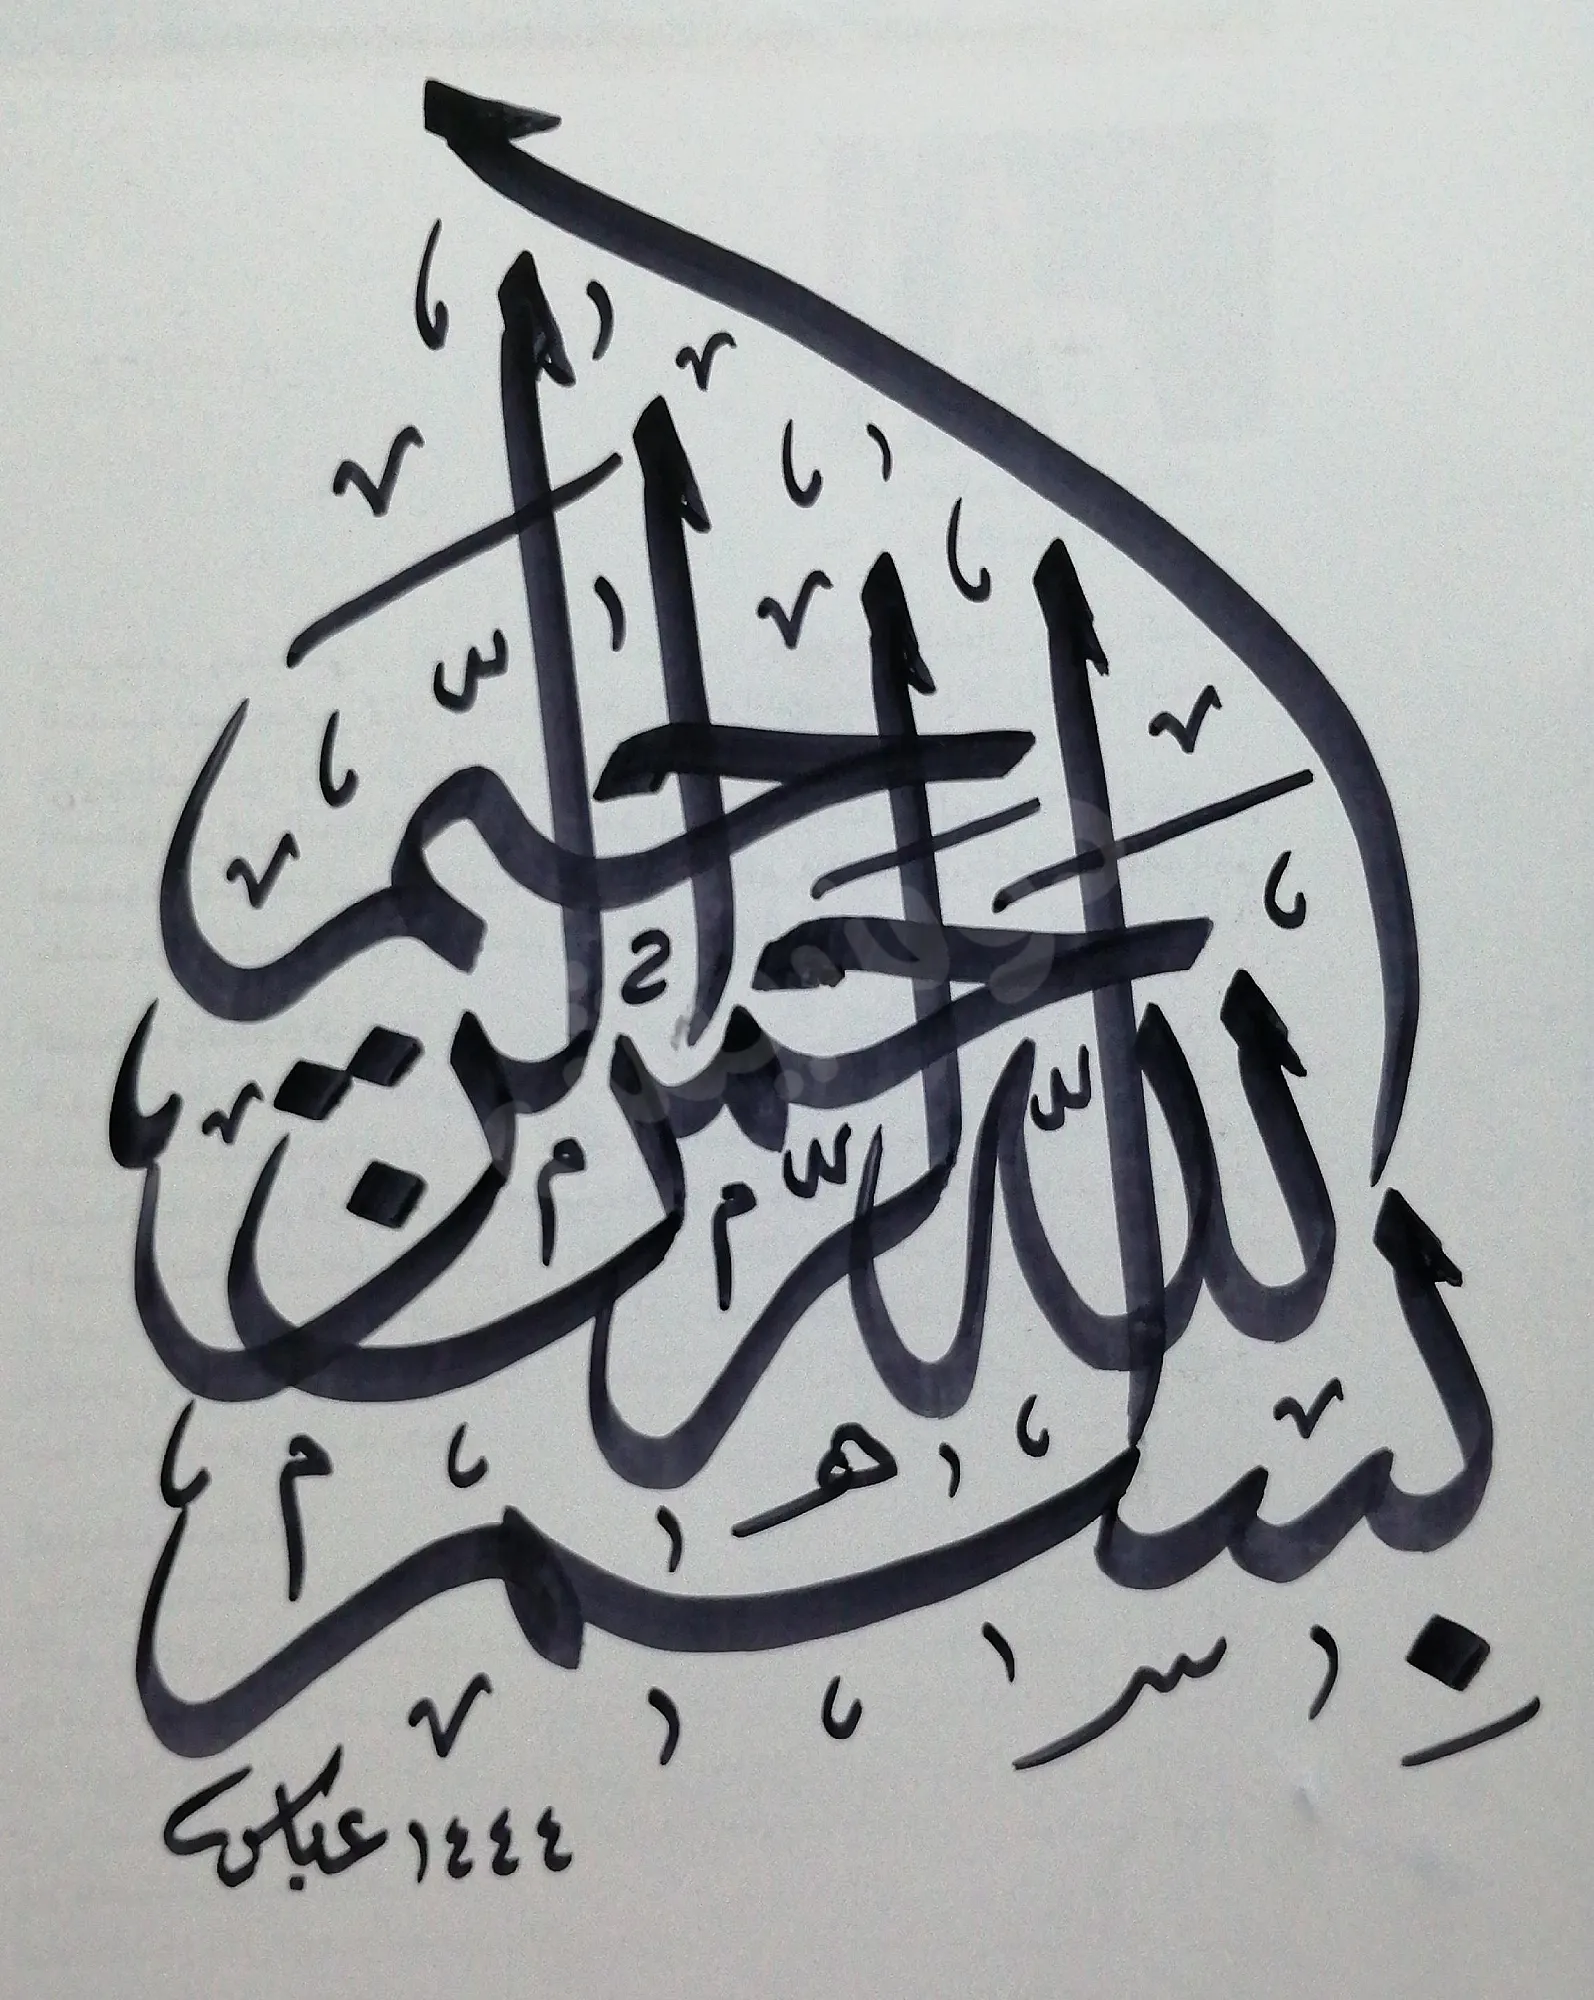 بسم الله الرحمن الرحيم
عباس ١٤٤٤